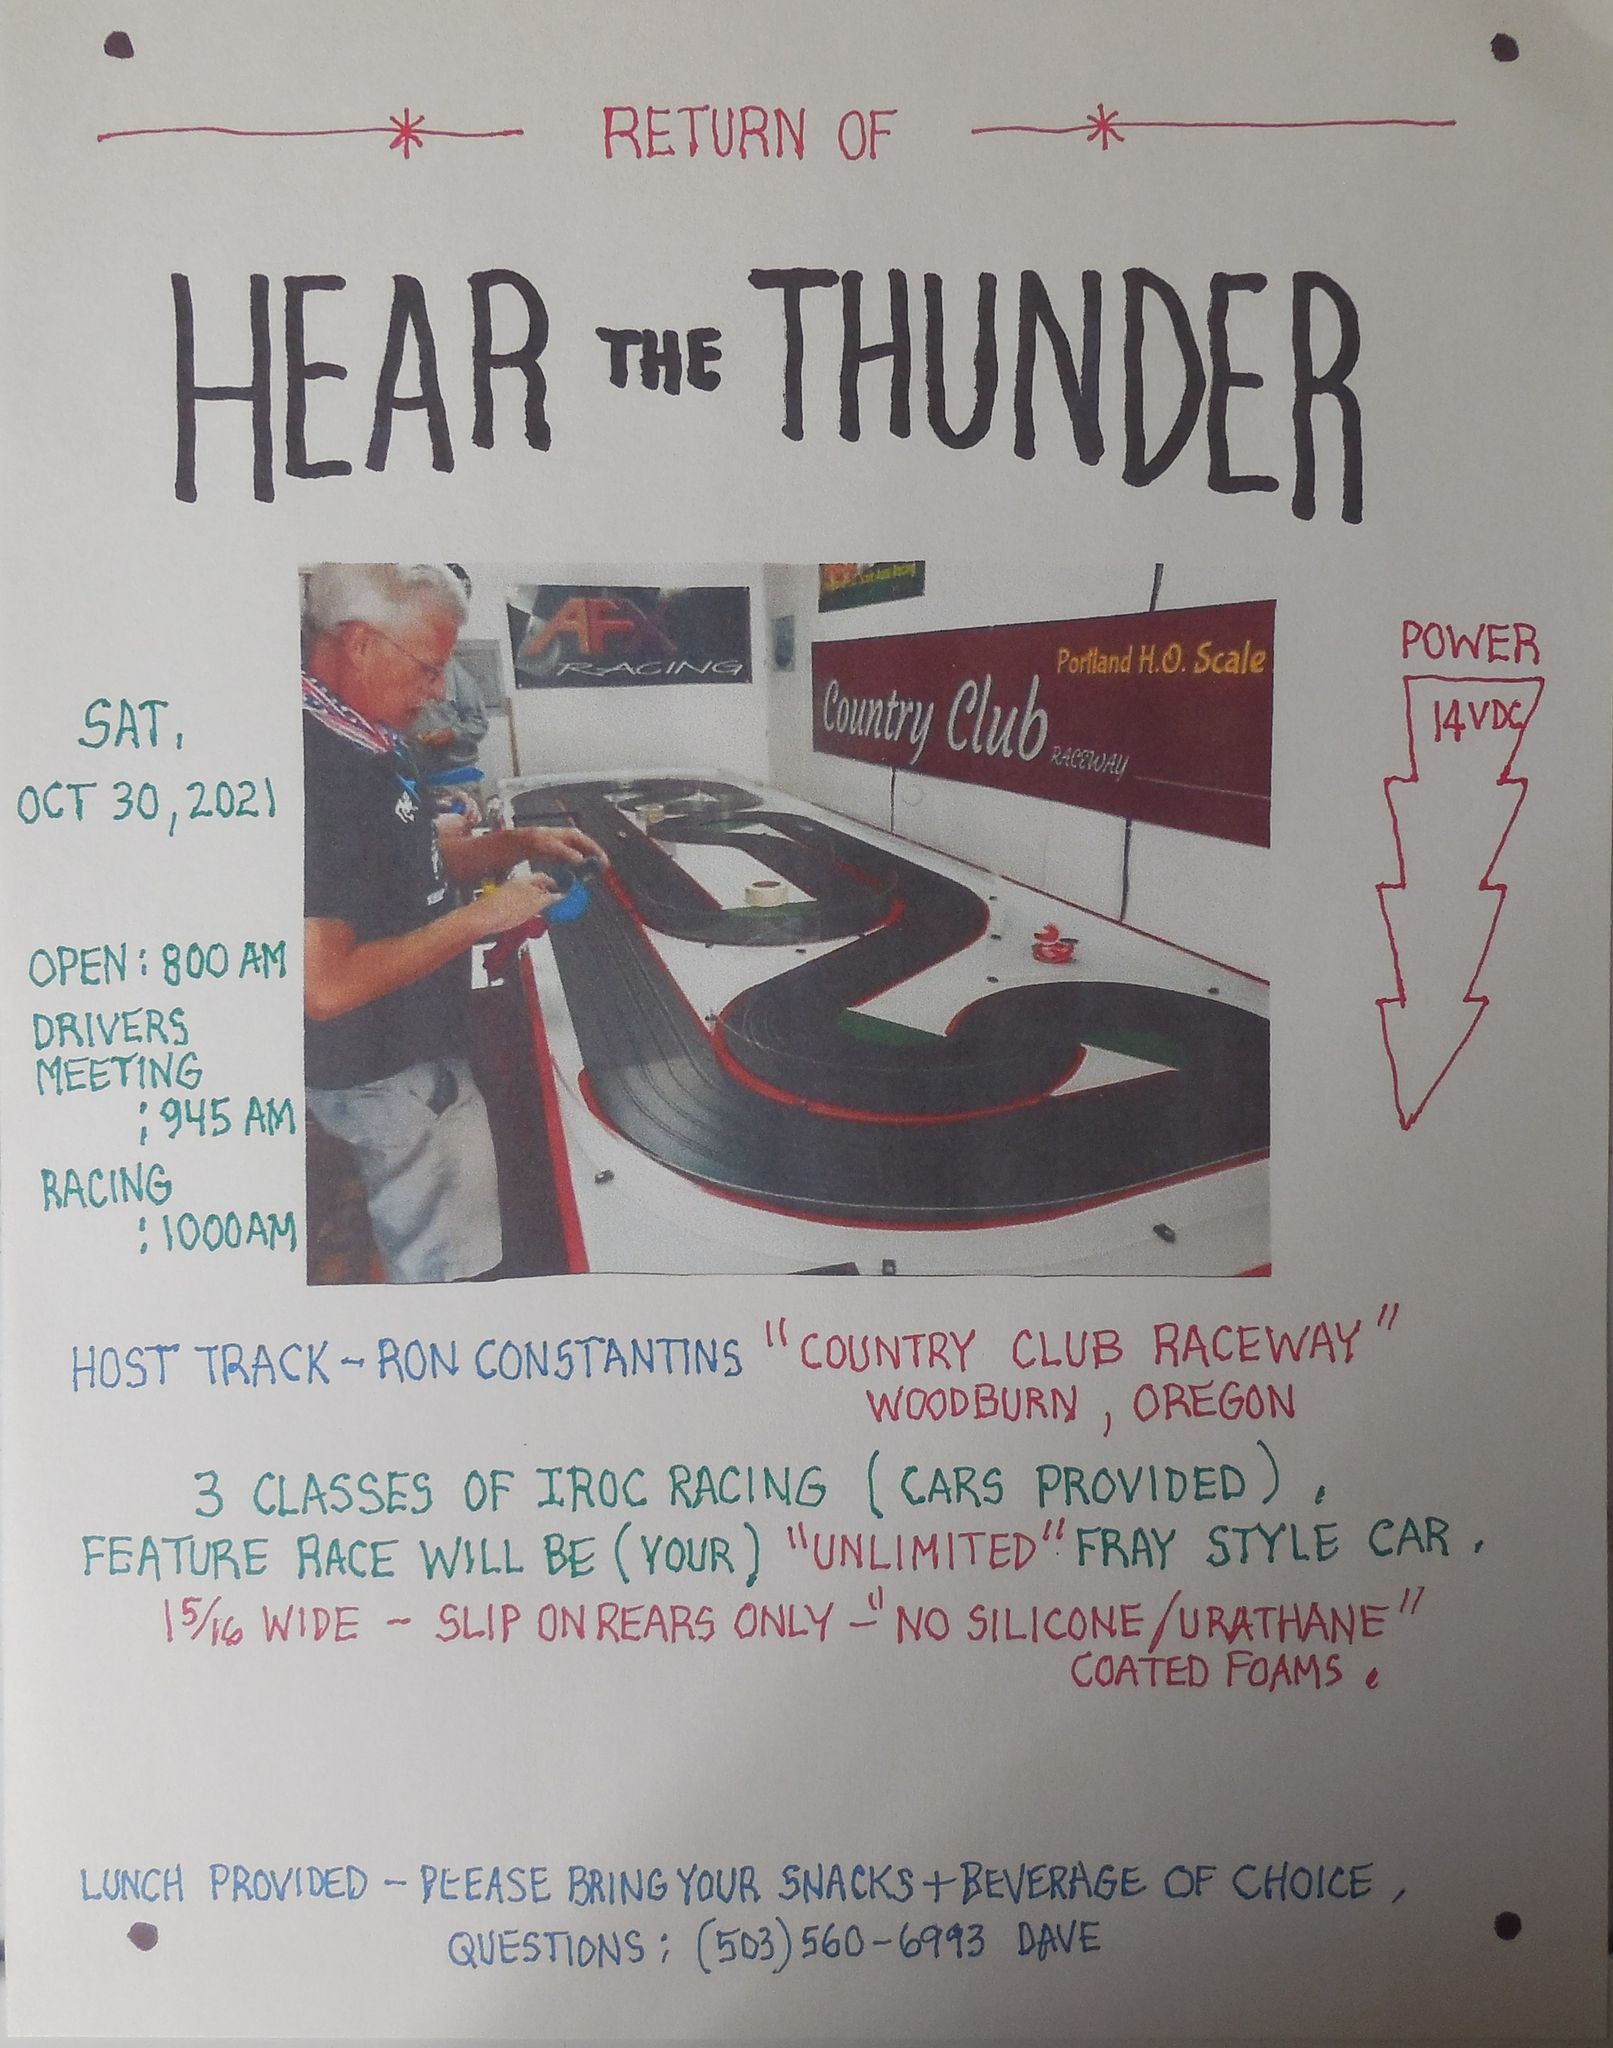 RETURN OF
HEAR THE THUNDER
AFX
RACING
Portland H.O. Scale
Country Club
RACEWAY
POWER
14VDC
SAT.
OCT 30, 2021
OPEN: 800 AM
DRIVERS
MEETING
: 945 AM
RACING
: 1000AM
HOST TRACK ~ RON CONSTANTINS "COUNTRY CLUB RACEWAY"
WOODBURN, OREGON
3 CLASSES OF IROC RACING (CARS PROVIDED).
FEATURE RACE WILL BE (YOUR) "UNLIMITED" FRAY STYLE CAR.
1 5/16 WIDE ~ SLIP ON REARS ONLY - "NO SILICONE/URATHANE"
COATED FOAMS.
LUNCH PROVIDED - PLEASE BRING YOUR SNACKS + BEVERAGE OF CHOICE,
QUESTIONS: (503) 560-6993 DAVE